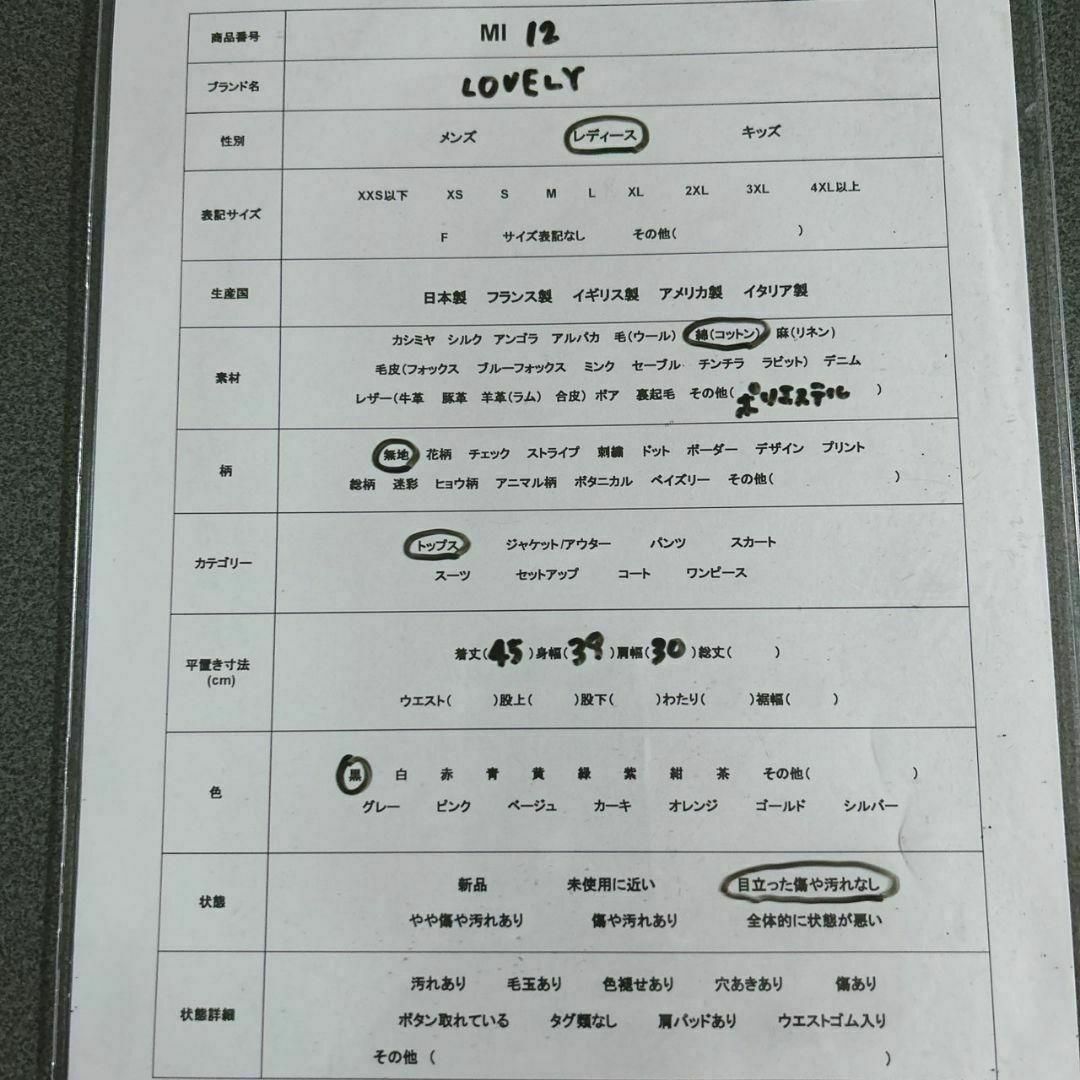 商品番号 MI 12
ブランド名 LOVELY
性別 メンズ レディース キッズ
表記サイズ
XXS以下 XS S M L XL 2XL 3XL 4XL以上
F サイズ表記なし その他( )
生産国 日本製 フランス製 イギリス製 アメリカ製 イタリア製
素材
カシミヤ シルク アンゴラ アルパカ 毛(ウール) 綿(コットン) 麻(リネン)
毛皮(フォックス ブルーフォックス ミンク セーブル チンチラ ラビット) デニム
レザー(牛革 豚革 羊革(ラム) 合皮) ボア 裏起毛 その他( ポリエステル )
柄
無地 花柄 チェック ストライプ 刺繍 ドット ボーダー デザイン プリント
総柄 迷彩 ヒョウ柄 アニマル柄 ボタニカル ペイズリー その他( )
カテゴリー
トップス ジャケット/アウター パンツ スカート
スーツ セットアップ コート ワンピース
平置き寸法
(cm)
着丈( 45 )身幅( 39 )肩幅( 30 )総丈( )
ウエスト( )股上( )股下( )わたり( )裾幅( )
色
黒 白 赤 青 黄 緑 紫 紺 茶 その他( )
グレー ピンク ベージュ カーキ オレンジ ゴールド シルバー
状態
新品 未使用に近い 目立った傷や汚れなし
やや傷や汚れあり 傷や汚れあり 全体的に状態が悪い
状態詳細
汚れあり 毛玉あり 色褪せあり 穴あきあり 傷あり
ボタン取れている タグ類なし 肩パッドあり ウエストゴム入り
その他 ( )